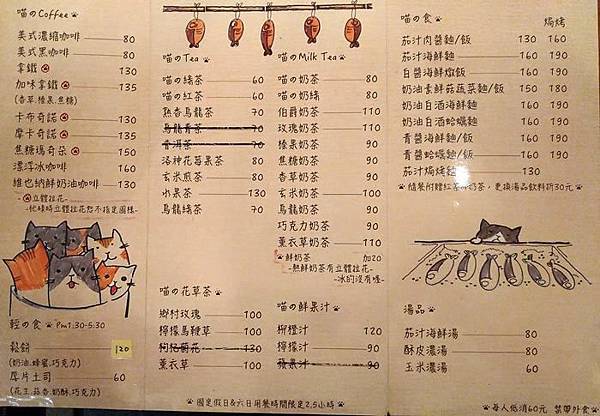 喵のCoffee
美式濃縮咖啡 80
美式黑咖啡 80
拿鐵 130
加味拿鐵 135
(香草.榛果.焦糖)
卡布奇諾 130
摩卡奇諾 135
焦糖瑪奇朵 150
漂浮冰咖啡 160
維也納鮮奶油咖啡 130
立體拉花
-忙碌時立體拉花恕不指定圖樣-
輕の食 Pm1:30-5:30
鬆餅 120
(奶油.蜂蜜.巧克力)
厚片土司 60
(花生.蒜香.奶酥.巧克力)
喵のTea
喵の綠茶 60
喵の紅茶 60
熟香烏龍茶 70
烏龍青茶 70
普洱茶 70
洛神花苺果茶 80
玄米煎茶 80
水果茶 130
烏龍綠茶 70
喵の花草茶
鄉村玫瑰 100
檸檬馬鞭草 100
枸杞菊花 130
薰衣草 100
喵のMilk Tea
喵の奶茶 80
喵の奶綠 80
伯爵奶茶 110
玫瑰奶茶 110
榛果奶茶 90
焦糖奶茶 90
香草奶茶 90
玄米奶茶 110
烏龍奶茶 90
巧克力奶茶 90
薰衣草奶茶 110
鮮奶茶 加20
-熱鮮奶茶有立體拉花-
-冰的沒有喔-
喵の鮮果汁
柳橙汁 120
檸檬汁 90
蘋果汁 90
國定假日&六日用餐時間限定2.5小時
喵の食 焗烤
茄汁肉醬麵/飯 130 160
茄汁海鮮麵 160 190
白醬海鮮燉飯 160 190
奶油素鮮菇蔬菜麵/飯 150 180
奶油白酒海鮮麵 160 190
奶油白酒蛤蠣麵 160 190
青醬海鮮麵/飯 160 190
青醬蛤蠣麵/飯 160 190
茄汁焗烤麵 130
隨餐附贈紅茶或奶茶，更換湯品飲料折30元
湯品
茄汁海鮮湯 80
酥皮濃湯 80
玉米濃湯 60
每人低消60元 禁帶外食